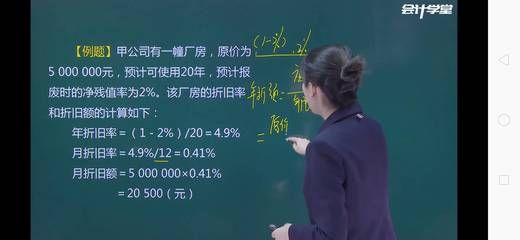 会计学堂
【例题】甲公司有一幢厂房，原价为
5 000 000元，预计可使用20年，预计报
废时的净残值率为2%。该厂房的折旧率
和折旧额的计算如下：
年折旧率＝（1 - 2%）/20＝4.9%
月折旧率＝4.9%/12＝0.41%
月折旧额＝5 000 000×0.41%
＝20 500（元）
(1-2%)
2%
年折旧额=
= 原价